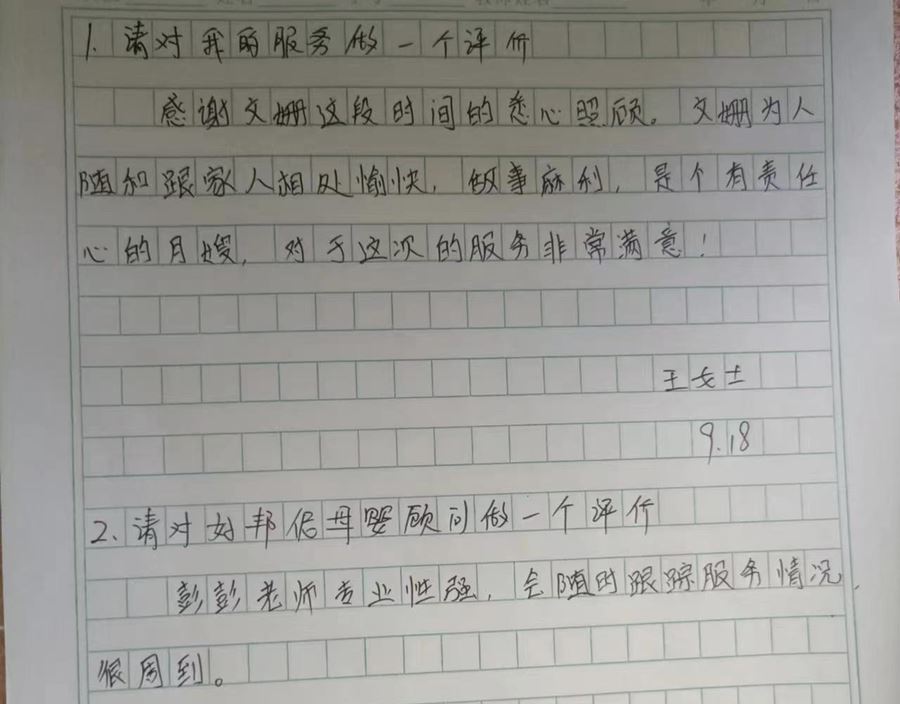 1. 请对我的服务做一个评价
感谢文姗这段时间的悉心照顾。文姗为人
随和跟家人相处愉快，做事麻利，是个有责任
心的月嫂，对于这次的服务非常满意！
王女士
9.18
2. 请对好邦伲母婴顾问做一个评价
彭彭老师专业性强，会随时跟踪服务情况，
很周到。